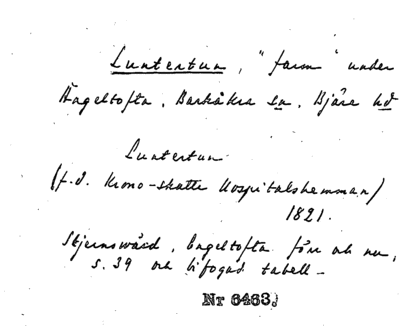 Luntertun, "farm" under
Ängeltofta, Barkåkra sn, Bjäre hd
Luntertun
(f.d. Krono-skatte Hospitalshemman)
1821.
Stjernswärd, Engeltofta förr och nu,
s. 39 och bifogad tabell –
Nr 6463.